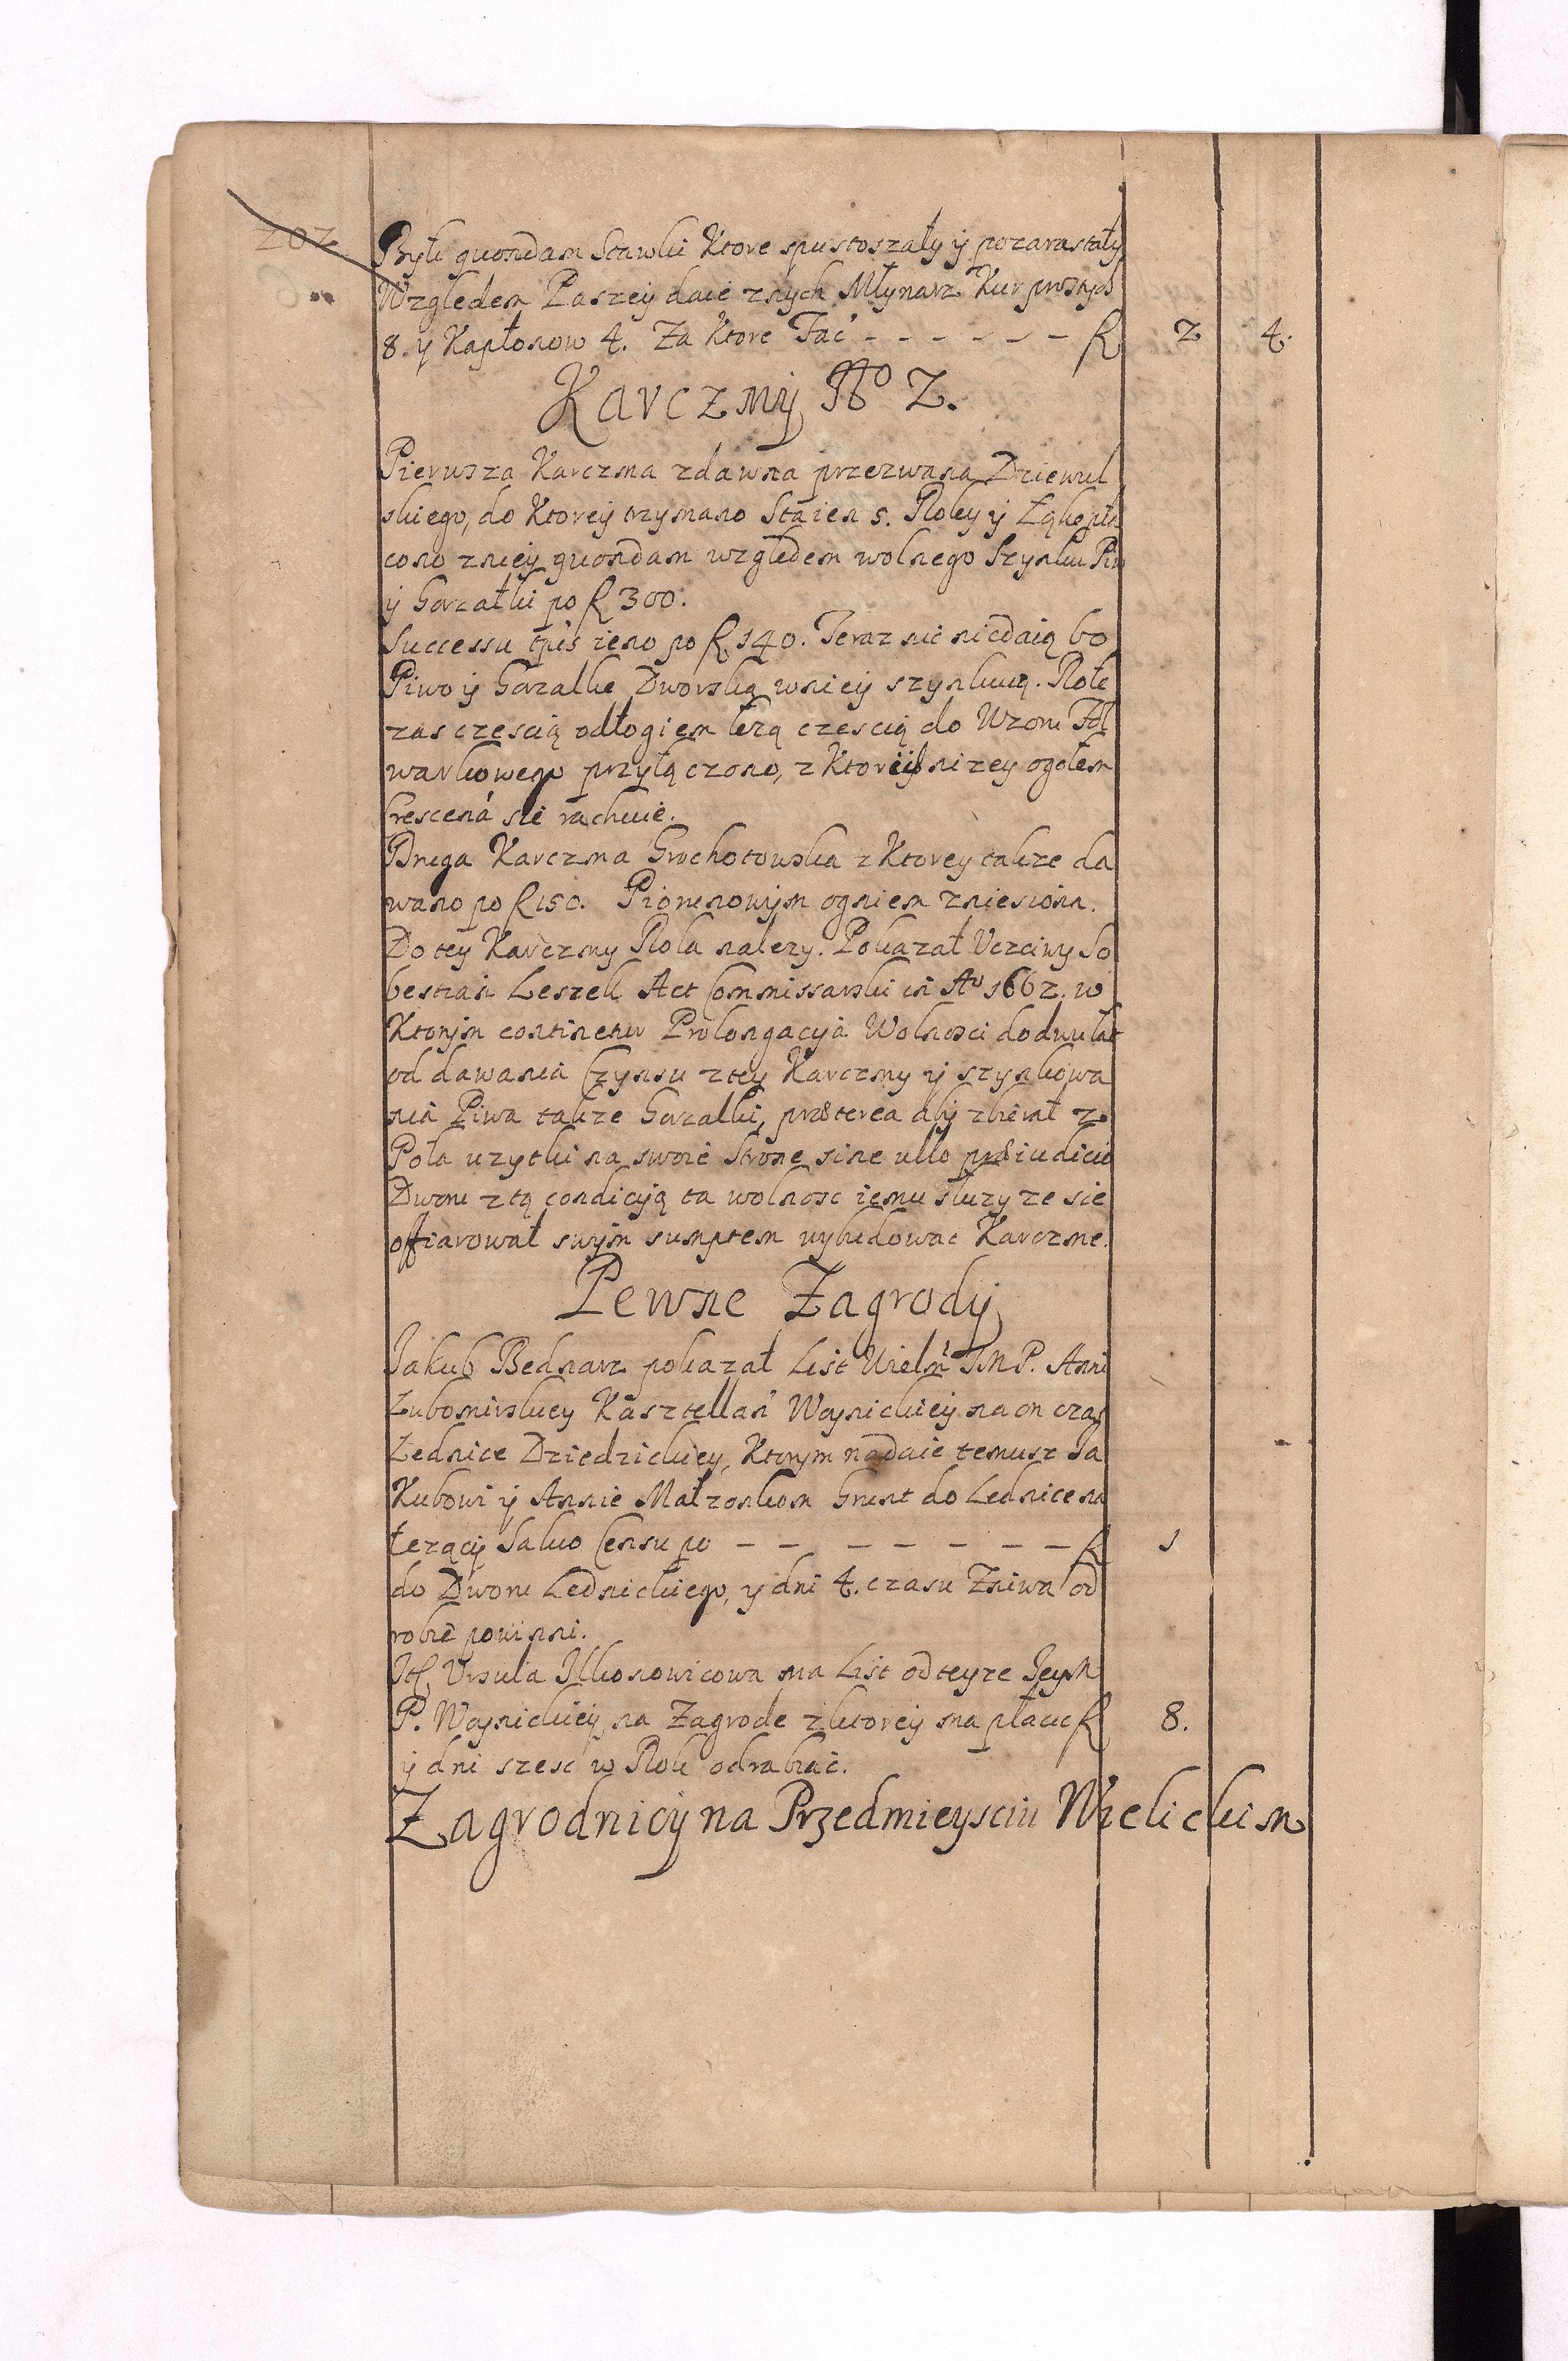 202
Były quondam Stawki Ktore spustoszały ÿ pozarastały
Względem Paszeÿ daie znych Młynarz Kur prostych
8. y Kapłonow 4. Za Ktore Fać - - - - - - fl 2 4.
Karczmÿ No 2.
Pierwsza Karczma zdawna przezwana Dziewul
skiego, do Ktoreÿ trzymano Staien 5. Roley ÿ Łąkę pła
cono znieÿ quondam względem wolnego Szynku Piw
ÿ Gorzałki po fl 300.
Successu tpis ieno po fl 140. Teraz nic niedaią bo
Piwo ÿ Gorzalke Dworską wnieÿ szynkuią. Role
zas częscią odłogiem leżą częscią do Dworu Fol
warkowego przyłączono, z Ktorÿch niżey ogołem
krescená się rachuie.
Druga Karczma Grochotowska z Ktorey także da
wano po fl 150. Piorunowÿm ogniem zniesiona.
Do tey Karczmy Rola należy. Pokazał Uczciwy Se
bestian Leszek Act Commissarski in Ao 1662. w
Ktorÿm continetur Prolongacÿa Wolnosci do dwu lat
od dawania Czynsu z tey Karczmy ÿ szynkowa
nia Piwa także Gorzałki, præterea abÿ zbierał z
Pola uzytki na swoię stronę sine ullo præiudicio
Dworu z tą condicÿą ta wolnosc iemu służy że się
offiarował swÿm sumptem wybudowac Karczmę.
Pewne Zagrodÿ
Jakub Bednarz pokazał List Wielm JMP. Anny
Lubomirskiey Kasztellan Woynickieÿ na on czas
Lednice Dziedzickiey, Ktorym nadaie temusz Ja
Kubowi ÿ Annie Małżonkom Grunt do Lednice na
leżącÿ Salvo Censu po - - - - - - - fl 1
do Dworu Lednickiego, ÿ dni 4. czasu Żniwa od
robić powinni.
Item Ursula Ilkonowicowa ma List od teyże JeyM
P. Woynickieÿ na Zagrode z ktoreÿ ma płacic fl 8.
ÿ dni szesć w Rok odrabiać.
Zagrodnicÿ na Przedmieysciu Wielickim